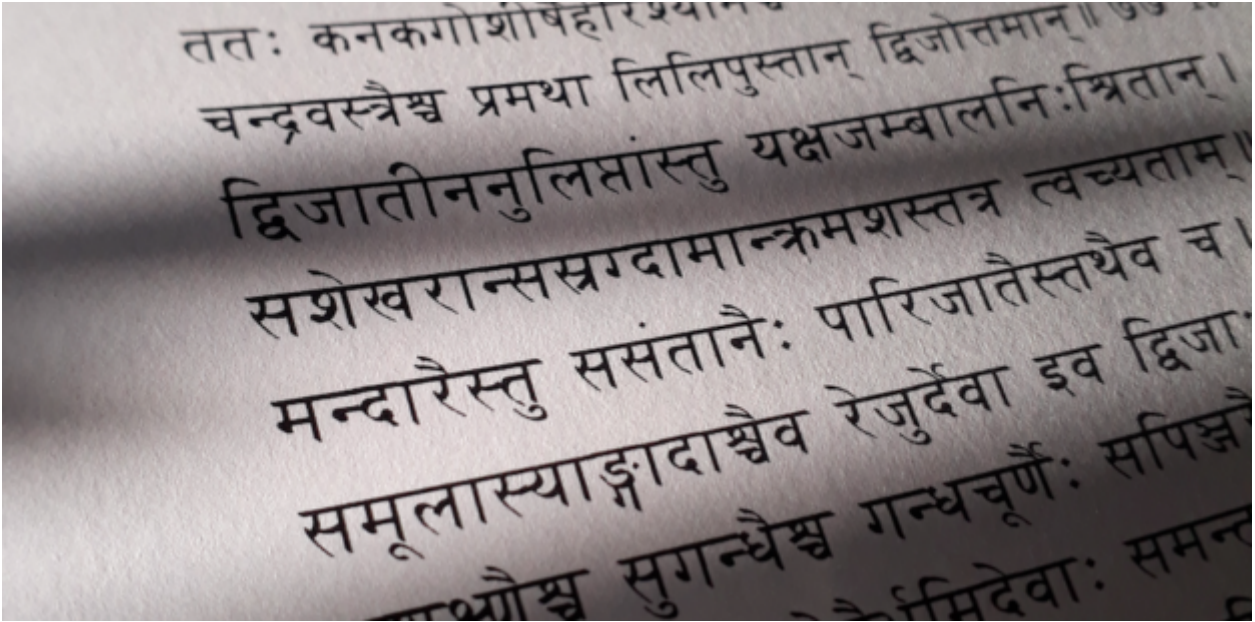 ततः
चन्द्रवस्त्रैश्च प्रमथा लिलिपुस्तान् द्विजोत्तमान्॥
द्विजातीननुलिप्तांस्तु यक्षजम्बालनिःश्रितान्।
सशेखरान्सस्रग्दामान्क्रमशस्तत्र त्वच्यताम्॥
मन्दारैस्तु ससंतानैः पारिजातैस्तथैव च।
समूलास्याङ्गदाश्चैव रेजुर्देवा इव द्विजाः
सुगन्धैश्च गन्धचूर्णैः